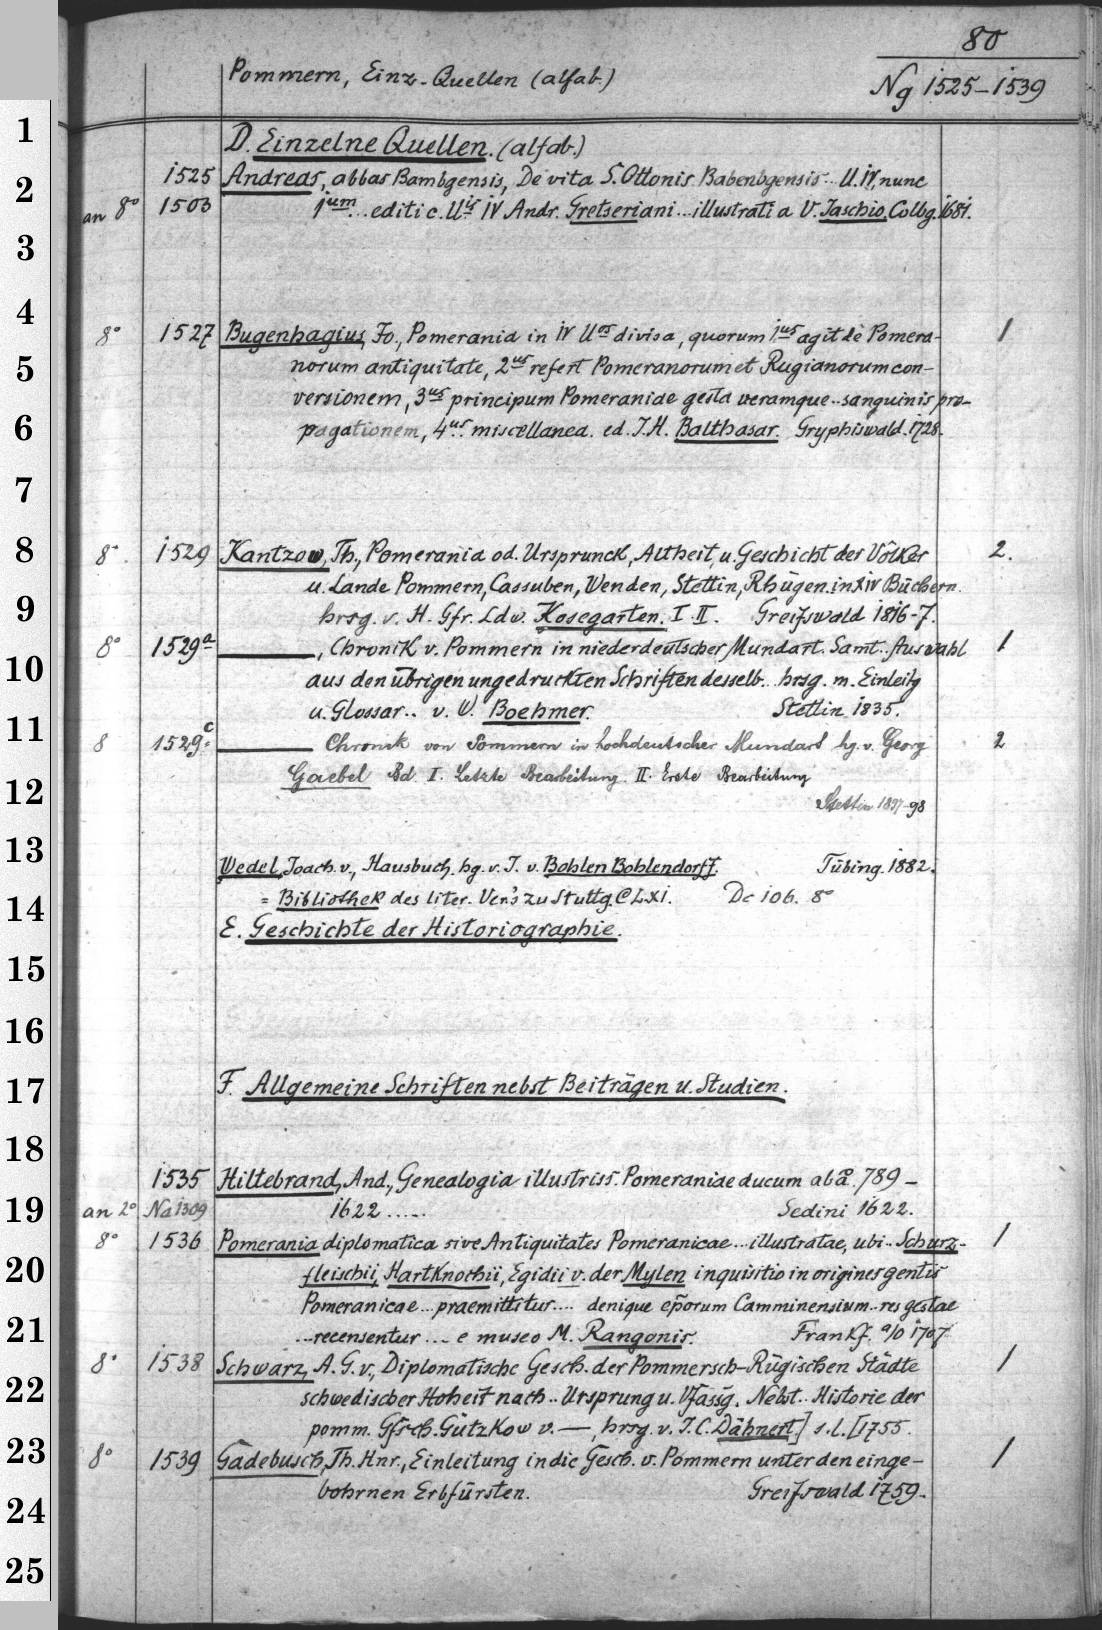 80
Pommern, Einz-Quellen (alfab.)
Ng 1525-1539
D. Einzelne Quellen. (alfab.)
1525 Andreas, abbas Bambgensis, De vita S. Ottonis Babenbgensis.. ll. IV, nunc
an 8° 1503 jum... editi c. ll is IV Andr. Gretseriani... illustrati a V. Jaschio, Colbg. 1681.
8° 1527 Bugenhagius, Jo., Pomerania in IV ll os divisa, quorum jus agit de Pomera- 1
norum antiquitate, 2us refert Pomeranorum et Rugianorum con-
versionem, 3us principum Pomeraniae gesta veramque.. sanguinis pro-
pagationem, 4us miscellanea. ed. J. H. Balthasar. Gryphiswald. 1728.
8° 1529 Kantzow, Th., Pomerania od. Ursprunck, Altheit, u. Geschicht der Völker 2.
u. Lande Pommern, Cassuben, Wenden, Stettin, Rhügen. in XIV Büchern.
hrsg. v. H. Gfr. Ldw. Kosegarten. I. II. Greifswald 1816-7.
8° 1529a ———, Chronik v. Pommern in niederdeutscher Mundart. Samt.. Auswahl 1
aus den übrigen ungedruckten Schriften desselb.. hrsg. m. Einleitg
u. Glossar.. v. W. Boehmer. Stettin 1835.
8 1529c ——— Chronik von Pommern in hochdeutscher Mundart hg. v. Georg 2
Gaebel Bd I. Letzte Bearbeitung. II. Erste Bearbeitung
Stettin 1897-98
Wedel, Joach. v., Hausbuch, hg. v. J. v. Bohlen Bohlendorff. Tübing. 1882.
= Bibliothek des liter. Ver's zu Stuttg. CLXI. Dc 106. 8°
E. Geschichte der Historiographie.
F. Allgemeine Schriften nebst Beiträgen u. Studien.
1535 Hiltebrand, And., Genealogia illustriss. Pomeraniae ducum ab a. 789-
an 2° Na 1309 1622..... Sedini 1622.
8° 1536 Pomerania diplomatica sive Antiquitates Pomeranicae... illustratae, ubi.. Schurz- 1
fleischii, Hartknochii, Egidii v. der Mylen inquisitio in origines gentis
Pomeranicae... praemittitur.... denique eporum Camminensium.. res gestae
...recensentur.... e museo M. Rangonis. Frankf. a/O 1707
8° 1538 Schwarz, A. G. v., Diplomatische Gesch. der Pommersch-Rügischen Städte 1
schwedischer Hoheit nach.. Ursprung u. Vfassg. Nebst.. Historie der
pomm. Gfsch. Gützkow v. —, hrsg. v. J. C. Dähnert] s. l. [1755.
8° 1539 Gadebusch, Th. Hnr., Einleitung in die Gesch. v. Pommern unter den einge- 1
bohrnen Erbfürsten. Greifswald 1759.
1
2
3
4
5
6
7
8
9
10
11
12
13
14
15
16
17
18
19
20
21
22
23
24
25